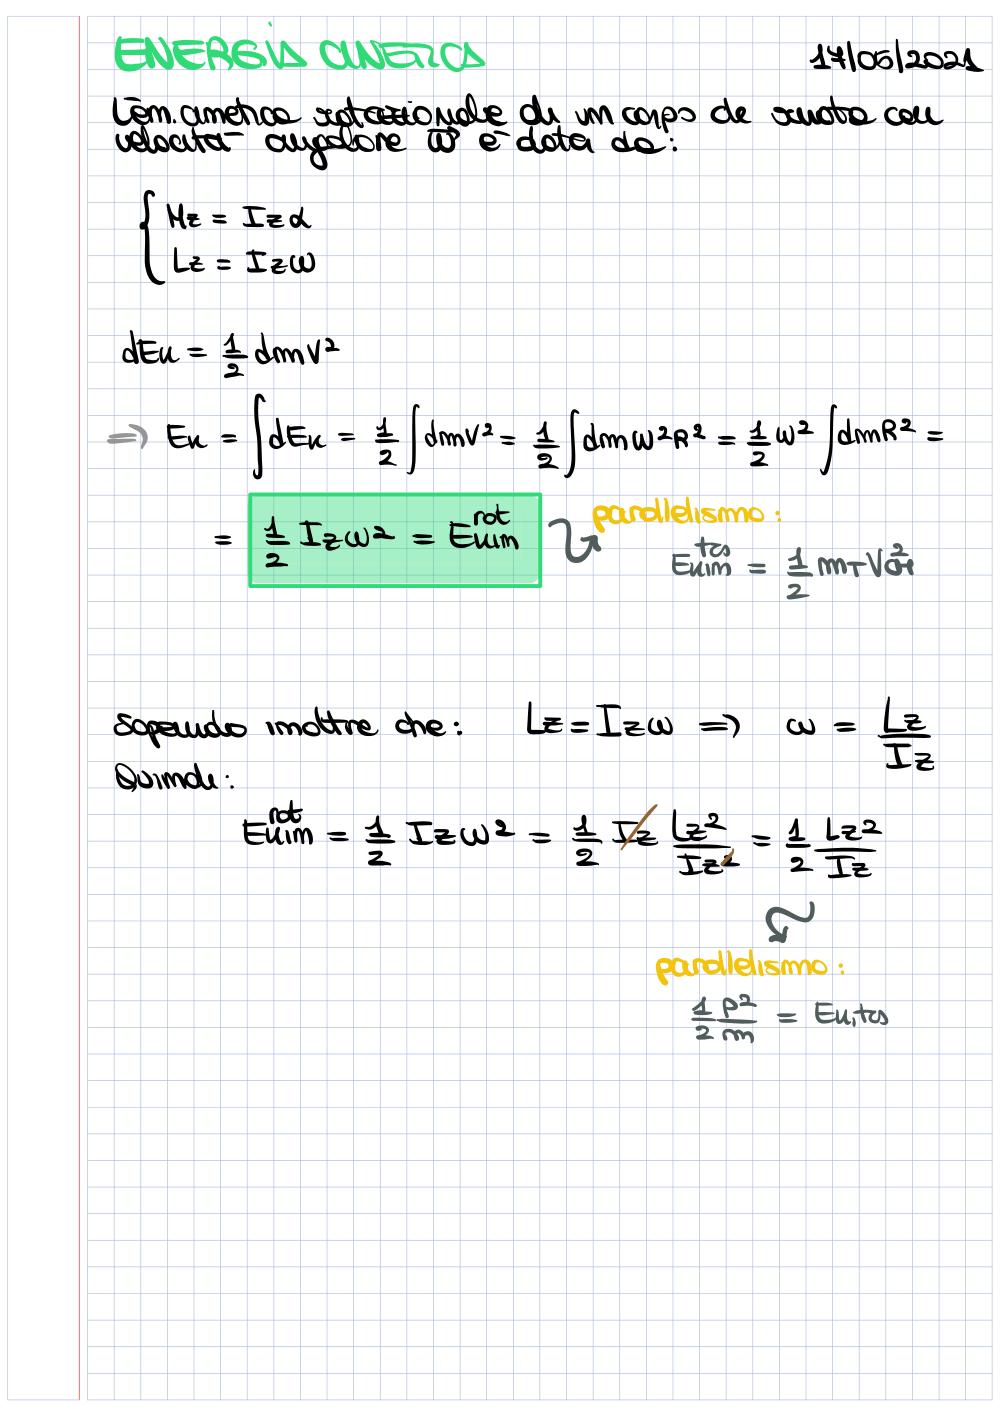 ENERGIA CINETICA
17/05/2021
L'en. cinetica rotazionale di un corpo che ruota con
velocità angolare ω è data da:
Mz = Iz α
Lz = Iz ω
dEk = 1/2 dm v²
⇒ Ek = ∫ dEk = 1/2 ∫ dm v² = 1/2 ∫ dm ω² R² = 1/2 ω² ∫ dm R² =
= 1/2 Iz ω² = Ekin^rot
parallelismo:
= 1/2 mT V²
Sapendo inoltre che: Lz = Iz ω ⇒ ω = Lz/Iz
Quindi:
Ekin^rot = 1/2 Iz ω² = 1/2 Iz Lz²/Iz² = 1/2 Lz²/Iz
parallelismo:
1/2 p²/m = Ek,tras